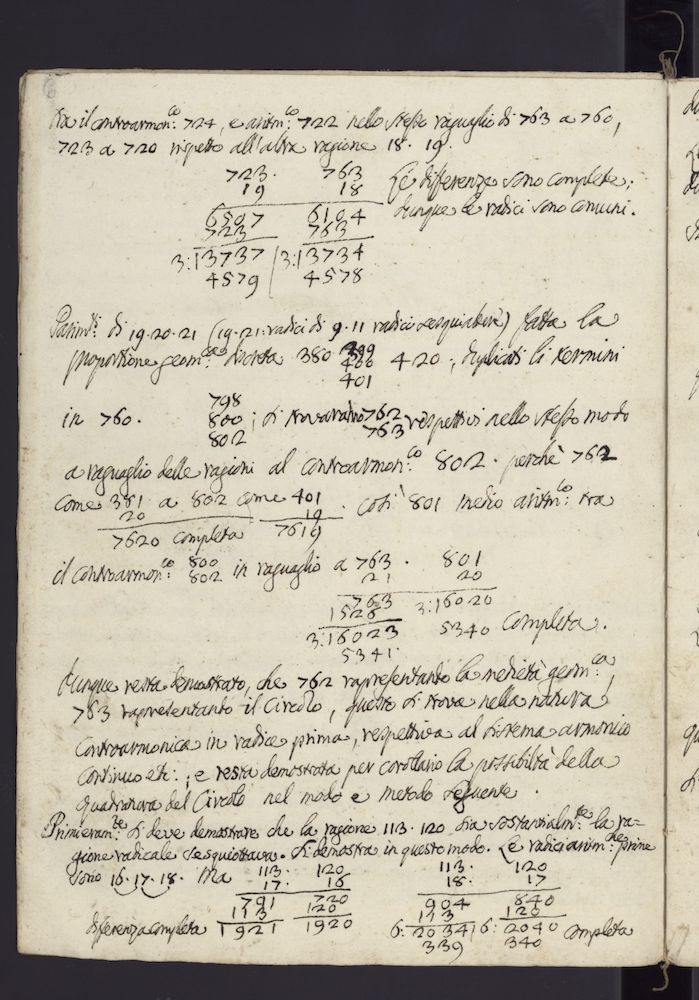 6
tra il controarmon:co 724, e aritm:co 722 nello stesso raguaglio di 763 a 760,
723 a 720 rispetto all'altra ragione 18. 19.
723. 763 Le differenze sono complete;
19 18 dunque le radici sono comuni.
6507 6104
723 763
3:13737 3:13734
4579 4578
Parim:ti di 19.20.21 (19.21: radici di 9.11 radici sesquialtere) fatta la
proportione geom:ca discreta 380 399 400 401 420; duplicati li termini
in 760. 798 800 802; si trovarano 762 763 respettivi nello stesso modo
a raguaglio delle ragioni al controarmon:co 802. perchè 762
come 381 a 802 come 401. Così 801 medio aritm:co tra
20 19
7620 completa 7619
il controarmon:co 800 802 in raguaglio a 763. 801
21 20
763 3:16020
1526
3:16023 5340 Completa.
5341.
Dunque resta demostrato, che 762 rapresentante la medietà geom:ca,
763 rapresentante il Circolo, questo si trova nella natura
Controarmonica in radice prima, respettiva al sistema armonico
Continuo etc:; e resta demostrata per corolario la possibiltà della
quadratura del Circolo nel modo e metodo seguente.
Primieram:te si deve demostrare che la ragione 113. 120 sia sostantialm:te la ra-
gione radicale sesquiottava. Si demostra in questo modo. Le radici aritm:che prime
sono 16.17.18. Ma 113. 120 113. 120
17. 16 18. 17
791 720 904 840
113 120 113 120
differenza completa 1921 1920 6: 2034 6: 2040 completa
339 340